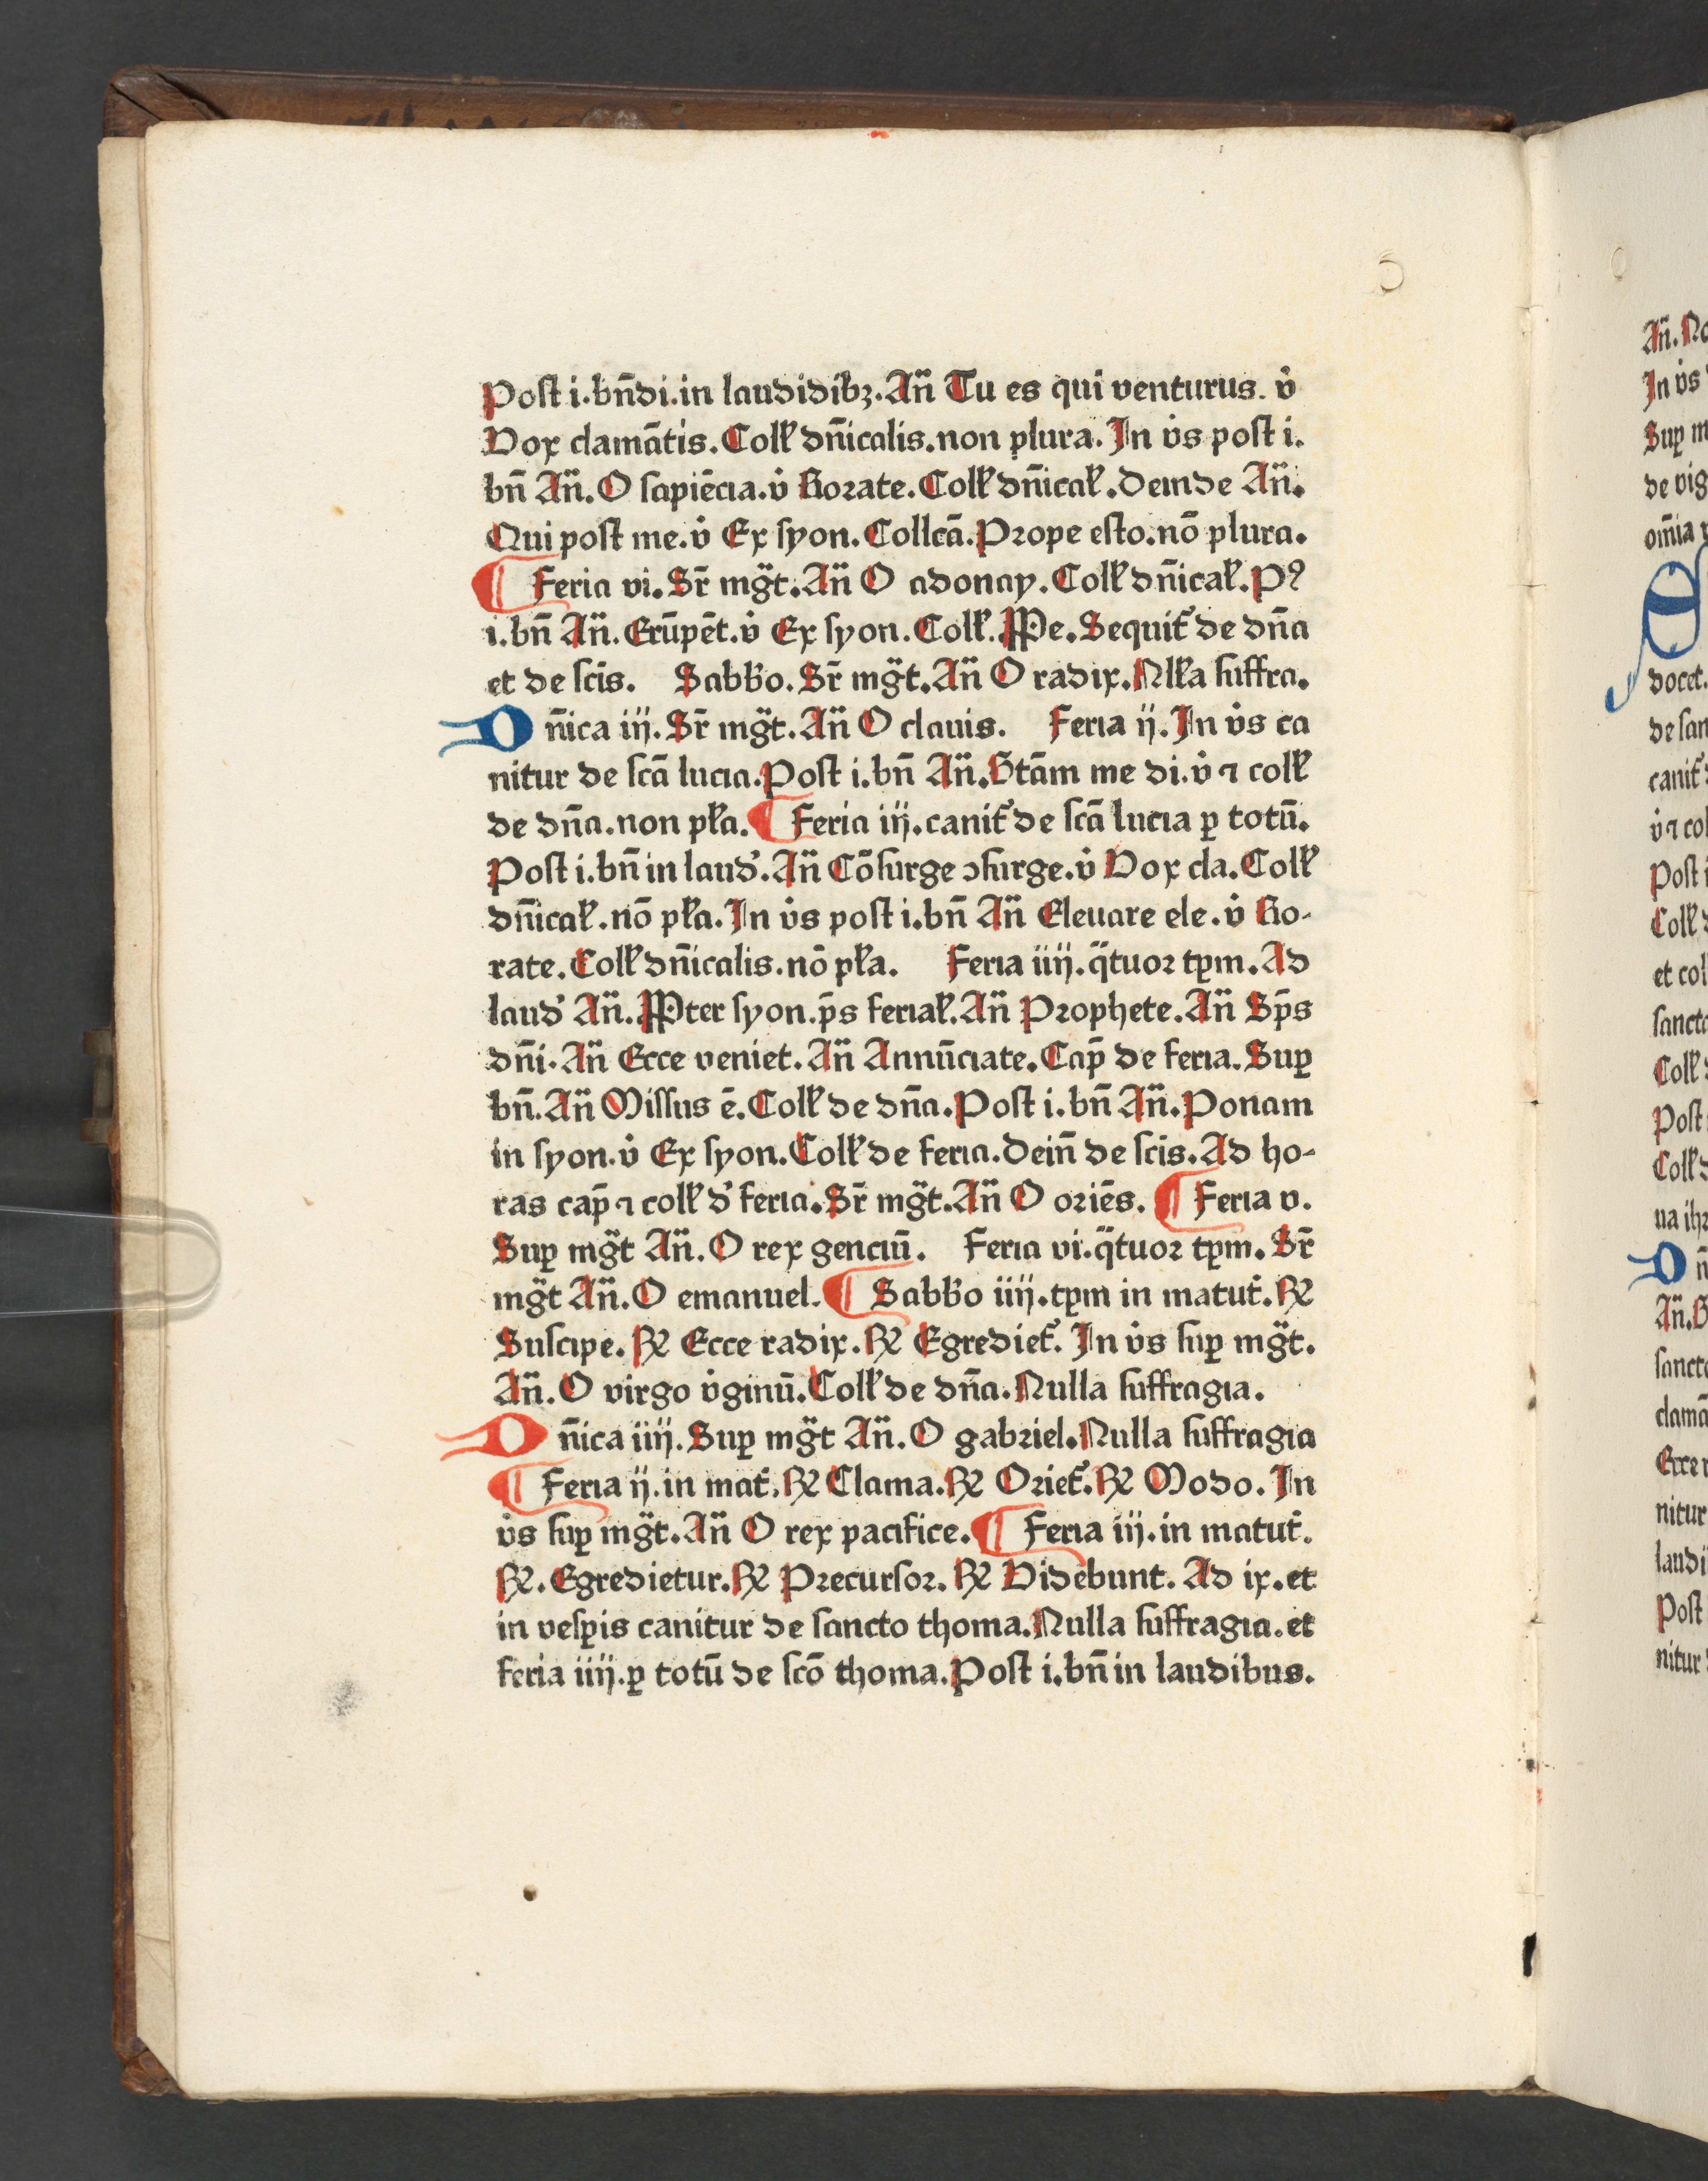 Post i.bn̄di.in laudidibꝫ.An̄ Tu es qui venturus. v̇
Vox clamātis.Coll̕ dn̄icalis.non plura.In v̇s post i.
bn̄ An̄.O sapiēcia.v̇ Rorate.Coll̕ dn̄ical̕.Deinde An̄.
Qui post me.v̇ Ex syon.Collcā.Prope esto.nō plura.
¶ Feria vi.Sr̄ mg̈t.An̄ O adonay.Coll̕ dn̄ical̕.Pꝰ
i.bn̄ An̄.Erūpēt.v̇ Ex syon.Coll̕.Me.Sequit᷑ de dn̄a
et de sc̄is. Sabb̄o.Sr̄ mg̈t.An̄ O radix.Nll̕a suffra.
Dn̄ica iij.Sr̄ mg̈t.An̄ O clauis. Feria ij.In v̇s ca
nitur de scā lucia.Post i.bn̄ An̄.Gtām me di.v̇ ⁊ coll̕
de dn̄a.non pl̕a.¶ Feria iij.canit᷑ de scā lucia ꝑ totū.
Post i.bn̄ in laud̕.An̄ Cōsurge ↄsurge.v̇ Vox cla.Coll̕
dn̄ical̕.nō pl̕a.In v̇s post i.bn̄ An̄ Eleuare ele.v̇ Ro-
rate.Coll̕ dn̄icalis.nō pl̕a. Feria iiij.q̈tuor tꝑm.Ad
laud̕ An̄.Pter syon.p̄s ferial̕.An̄ Prophete.An̄ Sp̄s
dn̄i.An̄ Ecce veniet.An̄ Annūciate.Cap̄ de feria.Suꝑ
bn̄.An̄ Missus ē.Coll̕ de dn̄a.Post i.bn̄ An̄.Ponam
in syon.v̇ Ex syon.Coll̕ de feria.Dein̄ de sc̄is.Ad ho-
ras cap̄ ⁊ coll̕ d̕ feria.Sr̄ mg̈t.An̄ O oriēs. ¶ Feria v.
Suꝑ mg̈t An̄.O rex genciū. Feria vi.q̈tuor tꝑm.Sr̄
mg̈t An̄.O emanuel.¶ Sabb̄o iiij.tꝑm in matut̕.℞
Suscipe.℞ Ecce radix.℞ Egrediet᷑.In v̇s suꝑ mg̈t.
An̄.O virgo v̇ginū.Coll̕ de dn̄a.Nulla suffragia.
Dn̄ica iiij.Suꝑ mg̈t An̄.O gabriel.Nulla suffragia
¶ Feria ij.in mat̕.℞ Clama.℞ Oriet᷑.℞ Modo.In
v̇s suꝑ mg̈t.An̄ O rex pacifice.¶ Feria iij.in matut̕.
℞.Egredietur.℞ Precursor.℞ Videbunt.Ad ix.et
in vesꝑis canitur de sancto thoma.Nulla suffragia.et
feria iiij.ꝑ totū de scō thoma.Post i.bn̄ in laudibus.
An̄.
In v̇s
Suꝑ
de vig
om̄ia
docet.
de san
canit᷑
v̇ ⁊ col
Post
Coll̕
et col
sancto
Coll̕
Post
Coll̕
ua ihꝫ
Dn̄
An̄.
sancto
clamā
Ecce
nitur
laudi
Post
nitur